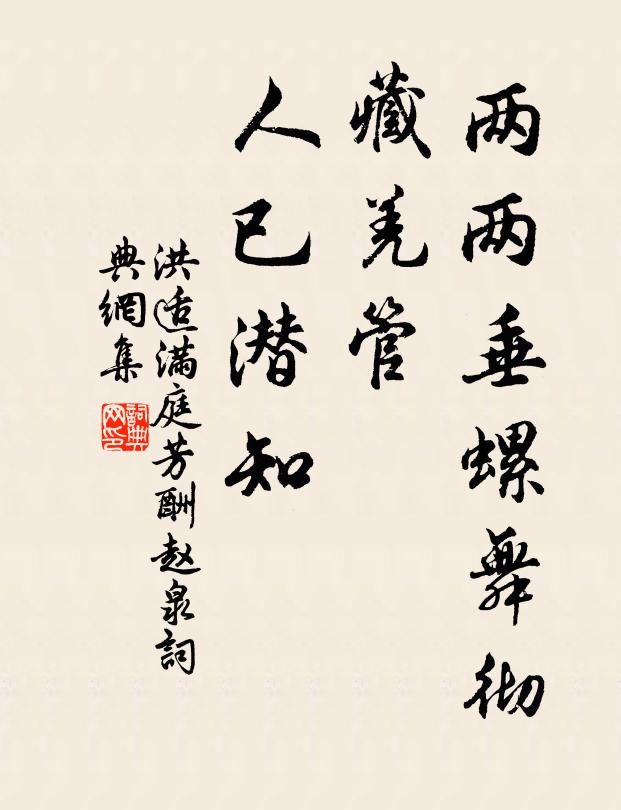 两两垂螺舞彻
藏羌管
人已潜知
洪适满庭芳酬赵泉詞
典網集
詞典网印